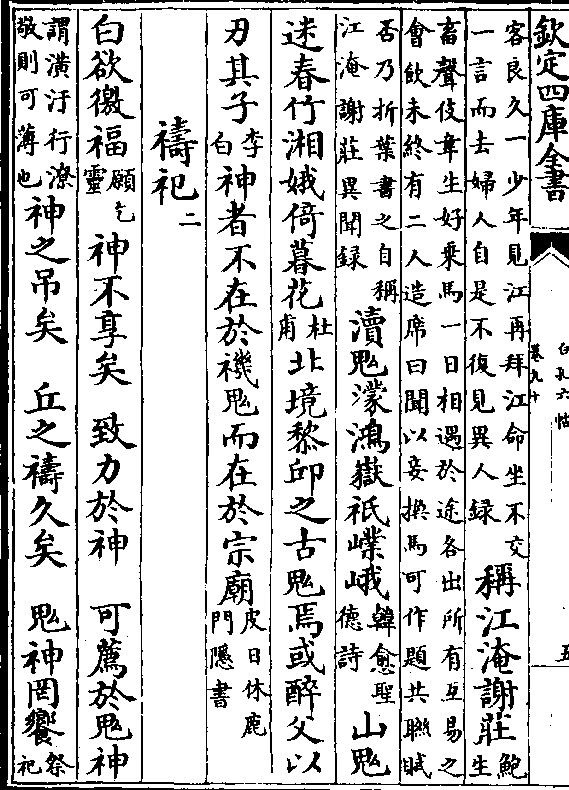 欽定四庫全書
白孔六帖
卷九十
五
客良久一少年見江再拜江命坐不交
一言而去婦人自是不復見異人録
稱江淹謝莊
鮑
生
畜聲伎韋生好乗馬一日相遇於途各出所有互易之
會飲未終有二人造席曰聞以妾換馬可作題共聯賦
否乃折葉書之自稱
江淹謝莊異聞録
瀆鬼濛鴻嶽祇嶫峨
韓愈聖
德詩
山鬼
迷春竹湘娥倚暮花
杜
甫
北境黎邱之古鬼焉或醉父以
刃其子
李
白
神者不在於禨鬼而在於宗廟
皮日休鹿
門隱書
禱祀二
白欲徼福
願乞
靈
神不享矣 致力於神 可薦於鬼神
謂潢汙行潦
敬則可薄也
神之吊矣 丘之禱久矣 鬼神罔饗
祭
祀